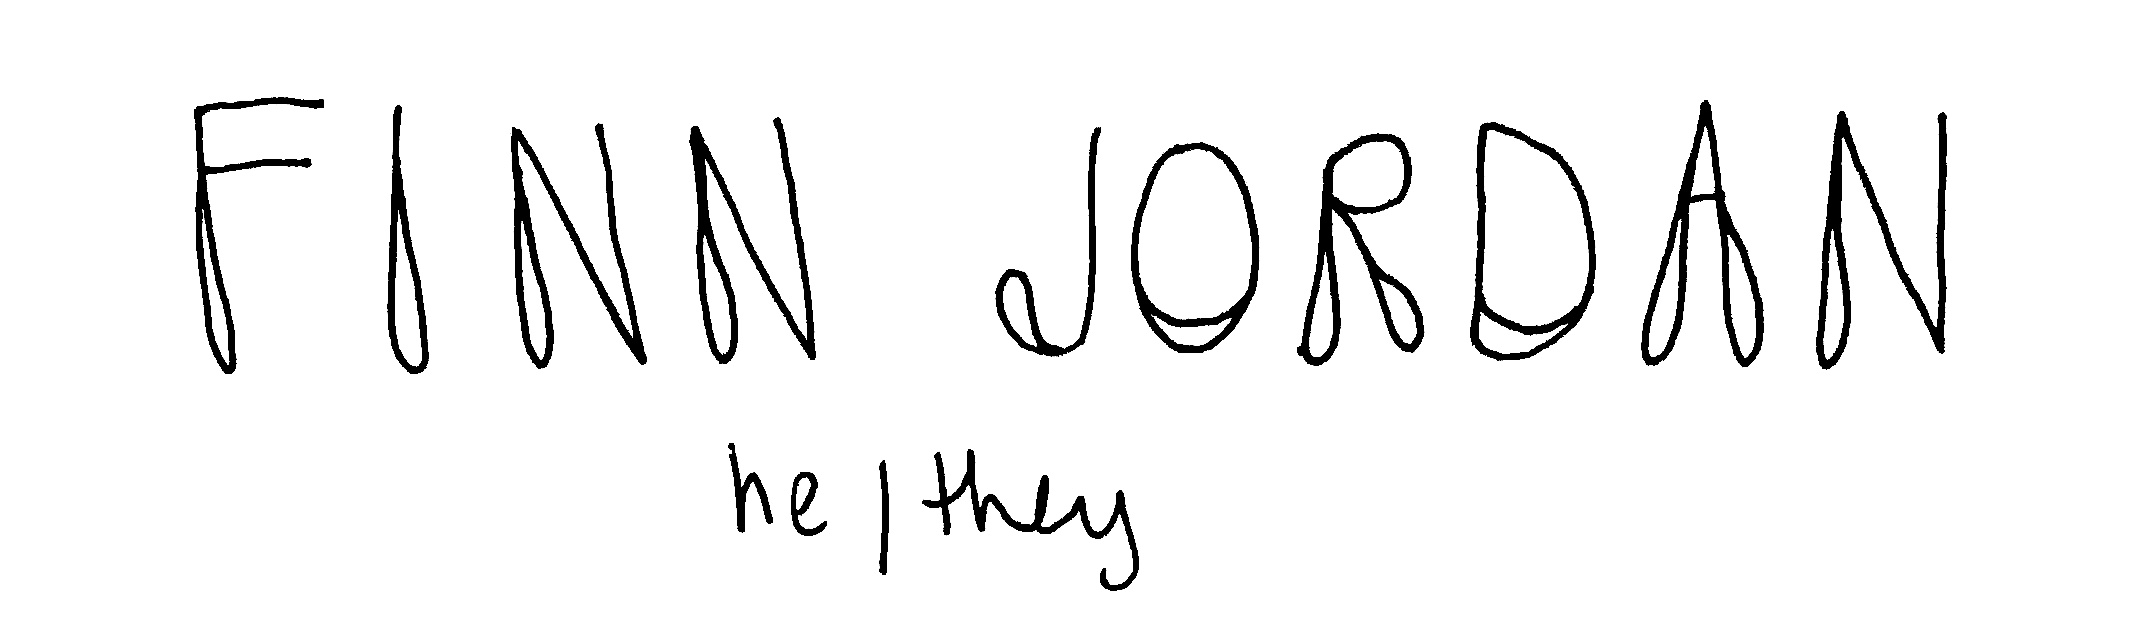 FINN JORDAN
he | they